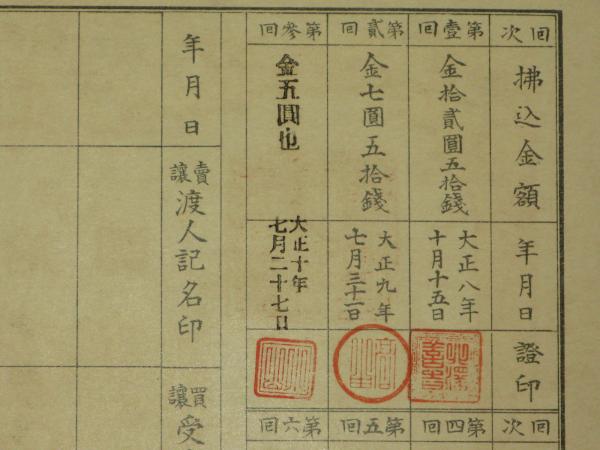 回次
拂込金額
年月日
證印
回次
第壹回
金拾貳圓五拾錢
大正八年
十月十五日
第四回
第貳回
金七圓五拾錢
大正九年
七月三十一日
第五回
第參回
金五圓也
大正十年
七月二十七日
第六回
年月日
賣讓渡人記名印
買讓受